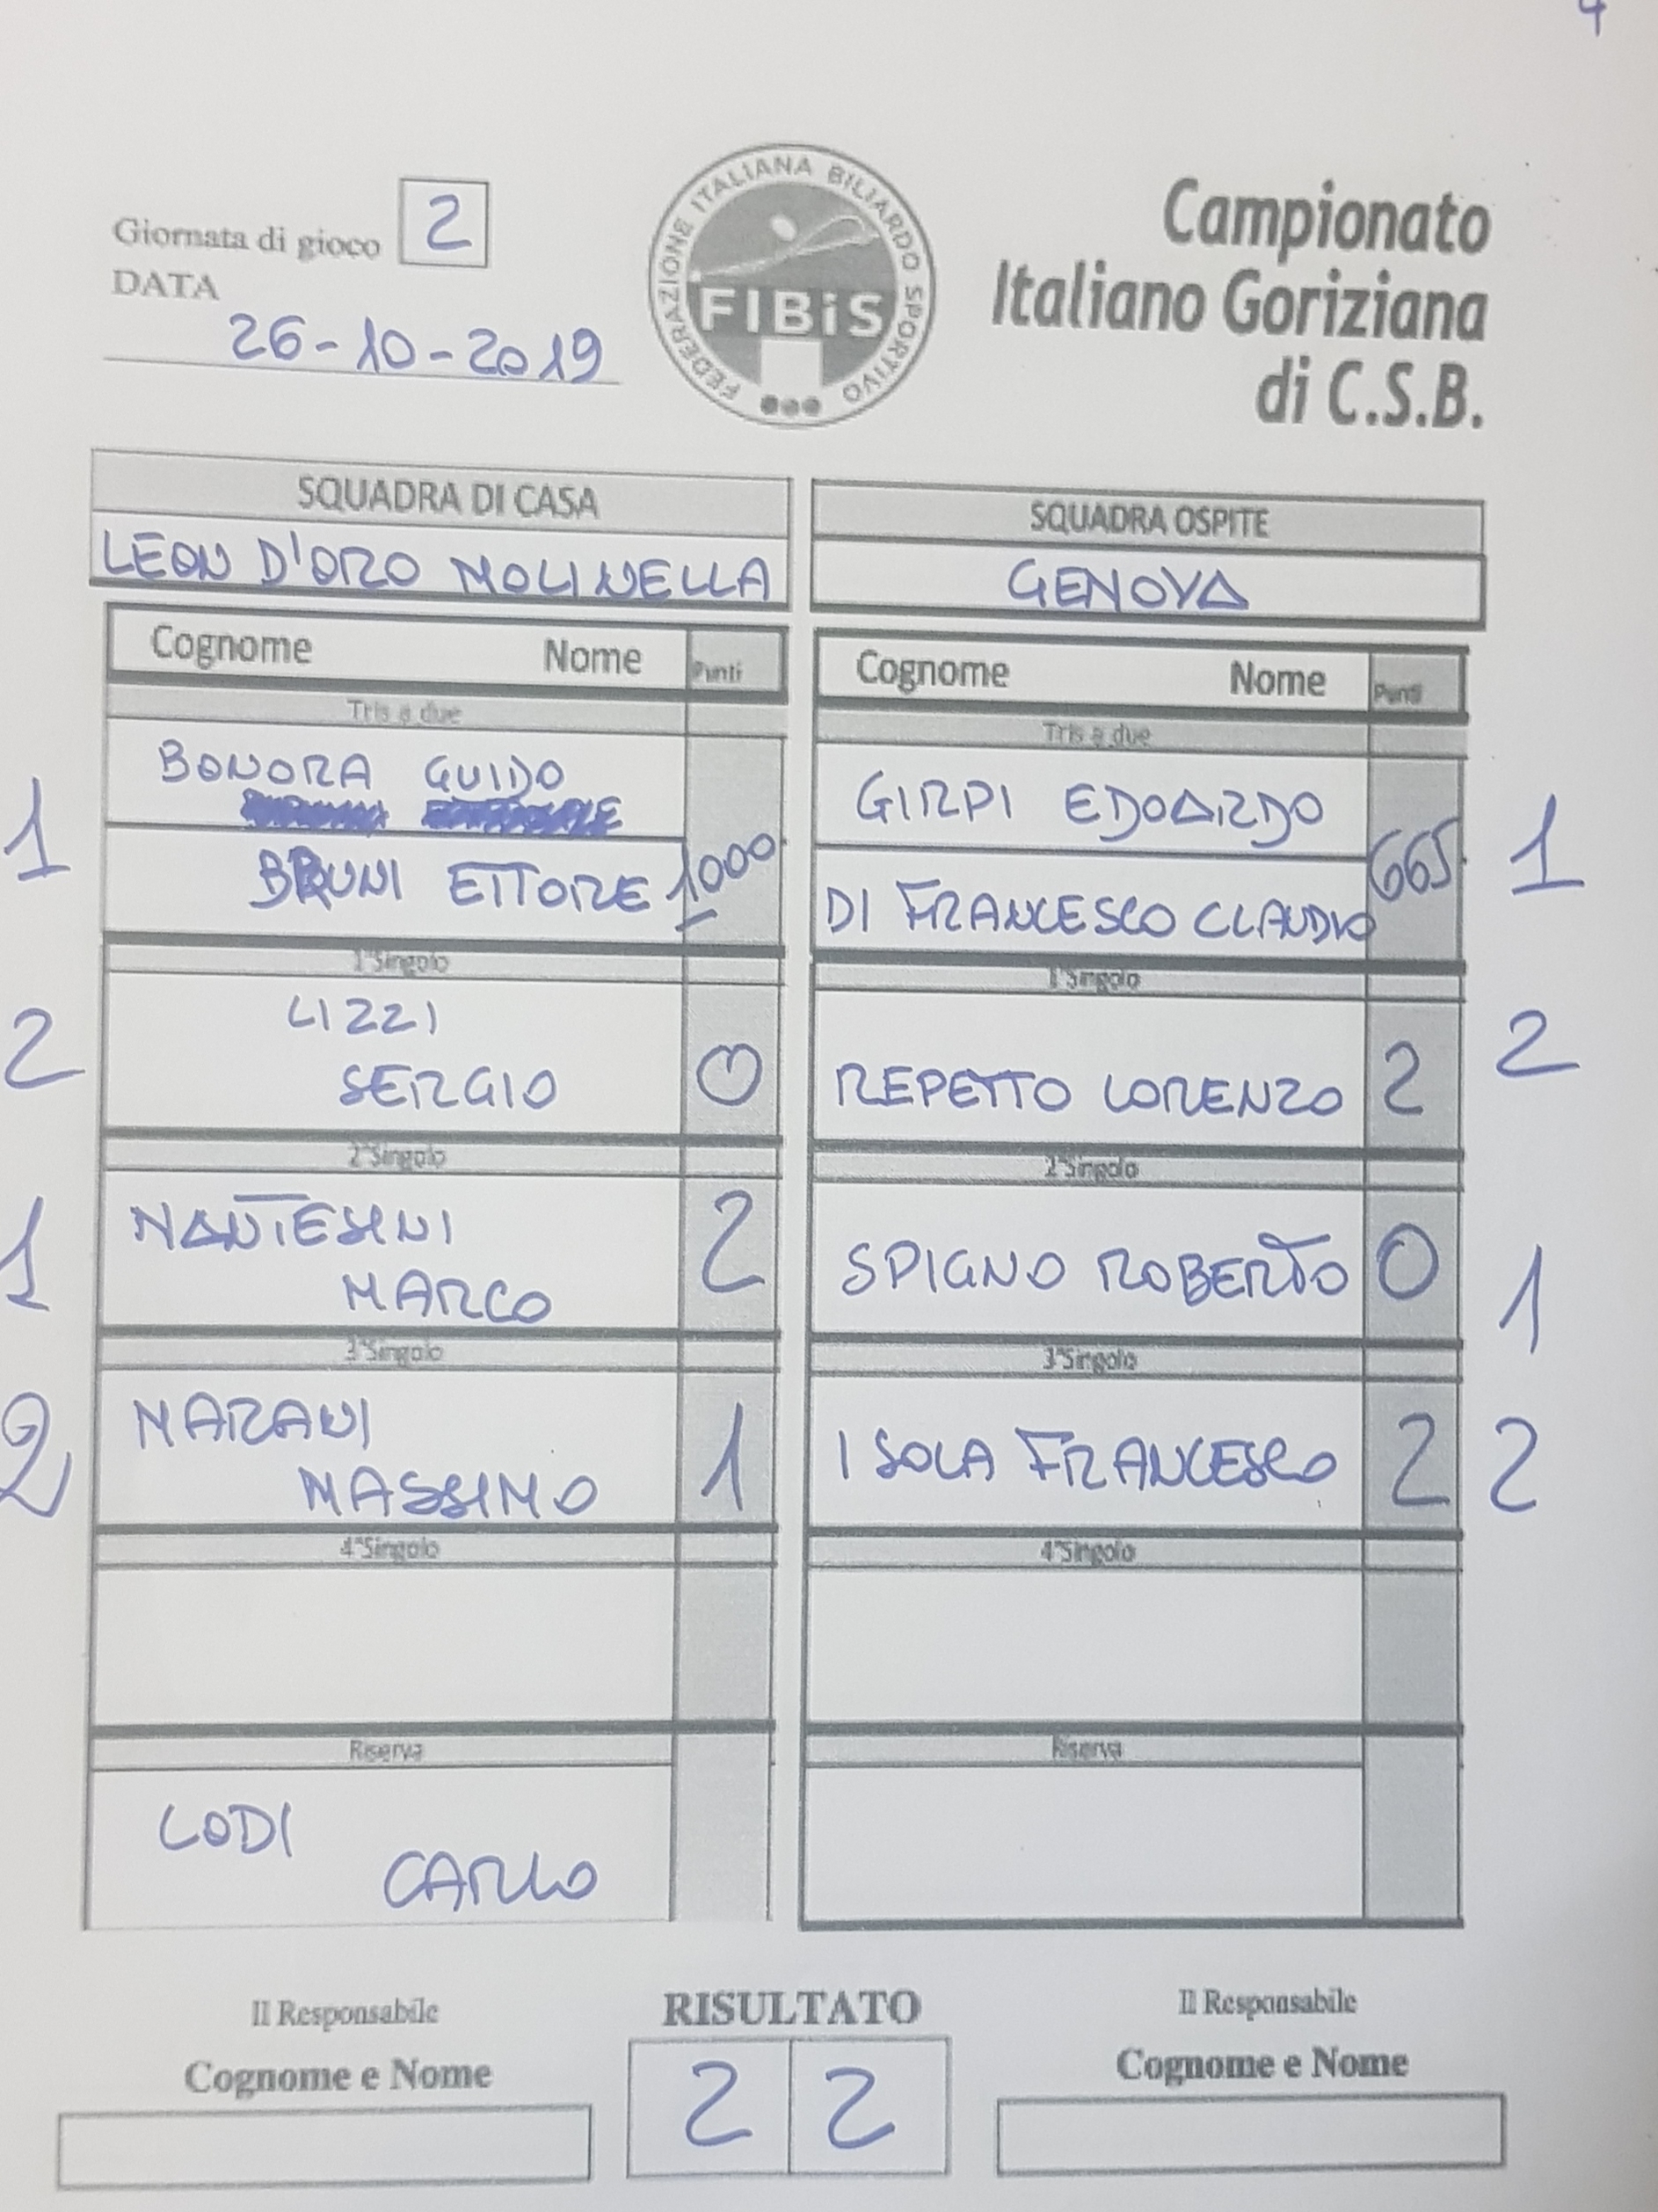 4
Giornata di gioco 2
DATA
26-10-2019
FEDERAZIONE ITALIANA BILIARDO SPORTIVO
FIBiS
Campionato
Italiano Goriziana
di C.S.B.
SQUADRA DI CASA
LEON D'ORO MOLINELLA
Cognome Nome Punti
Tris a due
BONORA GUIDO
1 BRUNI ETTORE 1000
1°Singolo
LIZZI
2 SERGIO 0
2°Singolo
MANTESINI 2
1 MARCO
3°Singolo
MARANI
2 MASSIMO 1
4°Singolo
Riserva
LODI
CARLO
SQUADRA OSPITE
GENOVA
Cognome Nome Punti
Tris a due
GIRPI EDOARDO
665 1
DI FRANCESCO CLAUDIO
1°Singolo
REPETTO LORENZO 2 2
2°Singolo
SPIGNO ROBERTO 0 1
3°Singolo
ISOLA FRANCESCO 2 2
4°Singolo
Riserva
Il Responsabile
Cognome e Nome
RISULTATO
2 2
Il Responsabile
Cognome e Nome